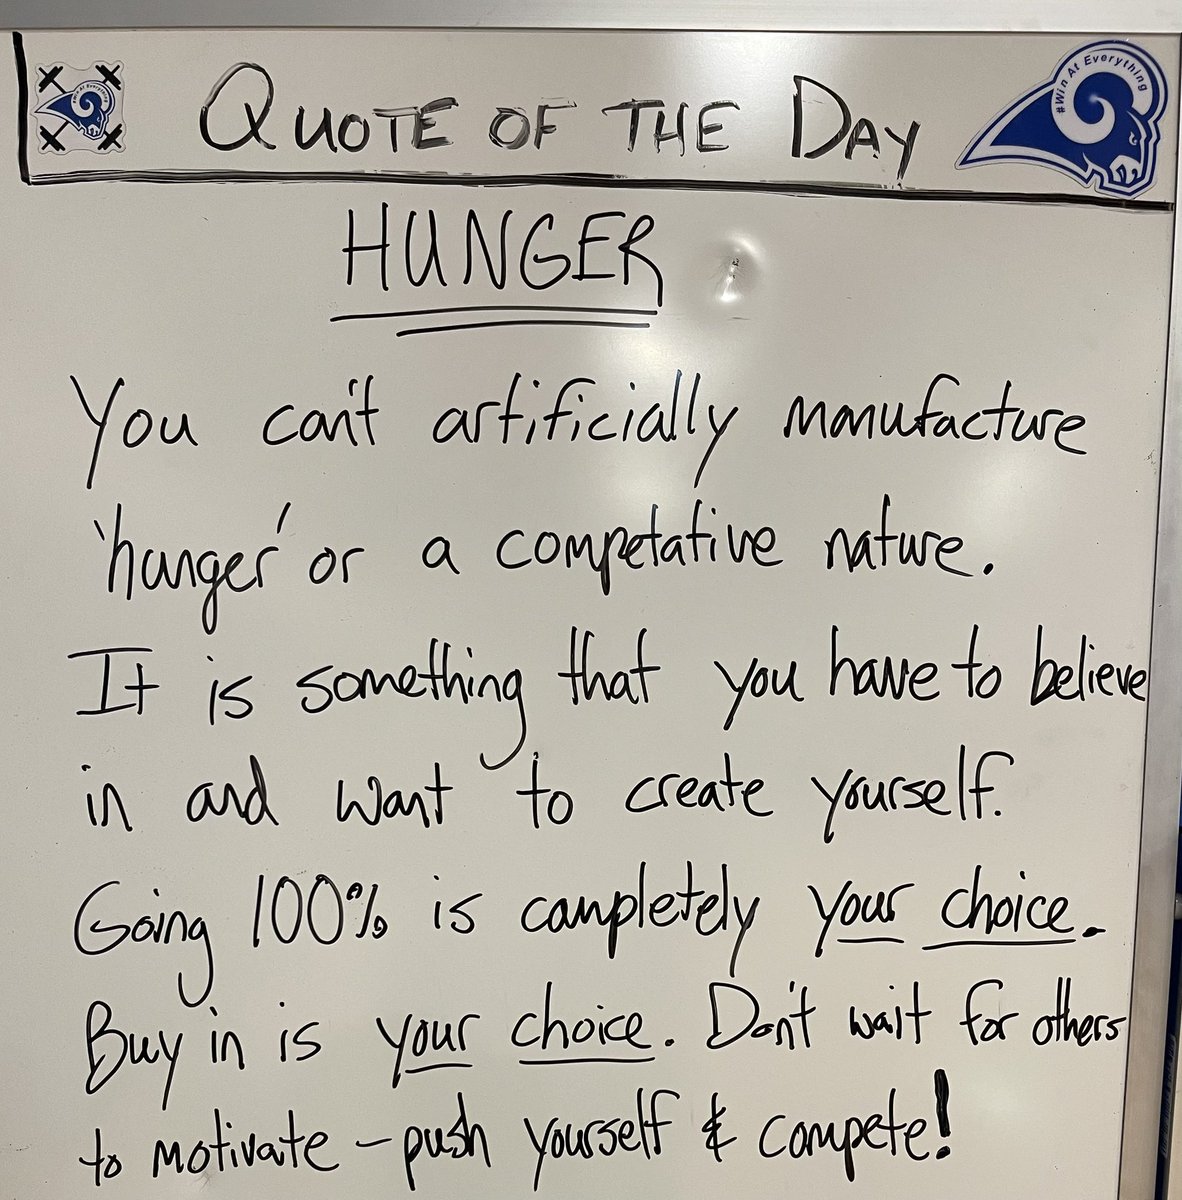 #Win At Everything
QUOTE OF THE DAY
#Win At Everything
HUNGER
You can't artificially manufacture
'hunger' or a competative nature.
It is something that you have to believe
in and want to create yourself.
Going 100% is completely your choice.
Buy in is your choice. Don't wait for others
to motivate - push yourself & compete!